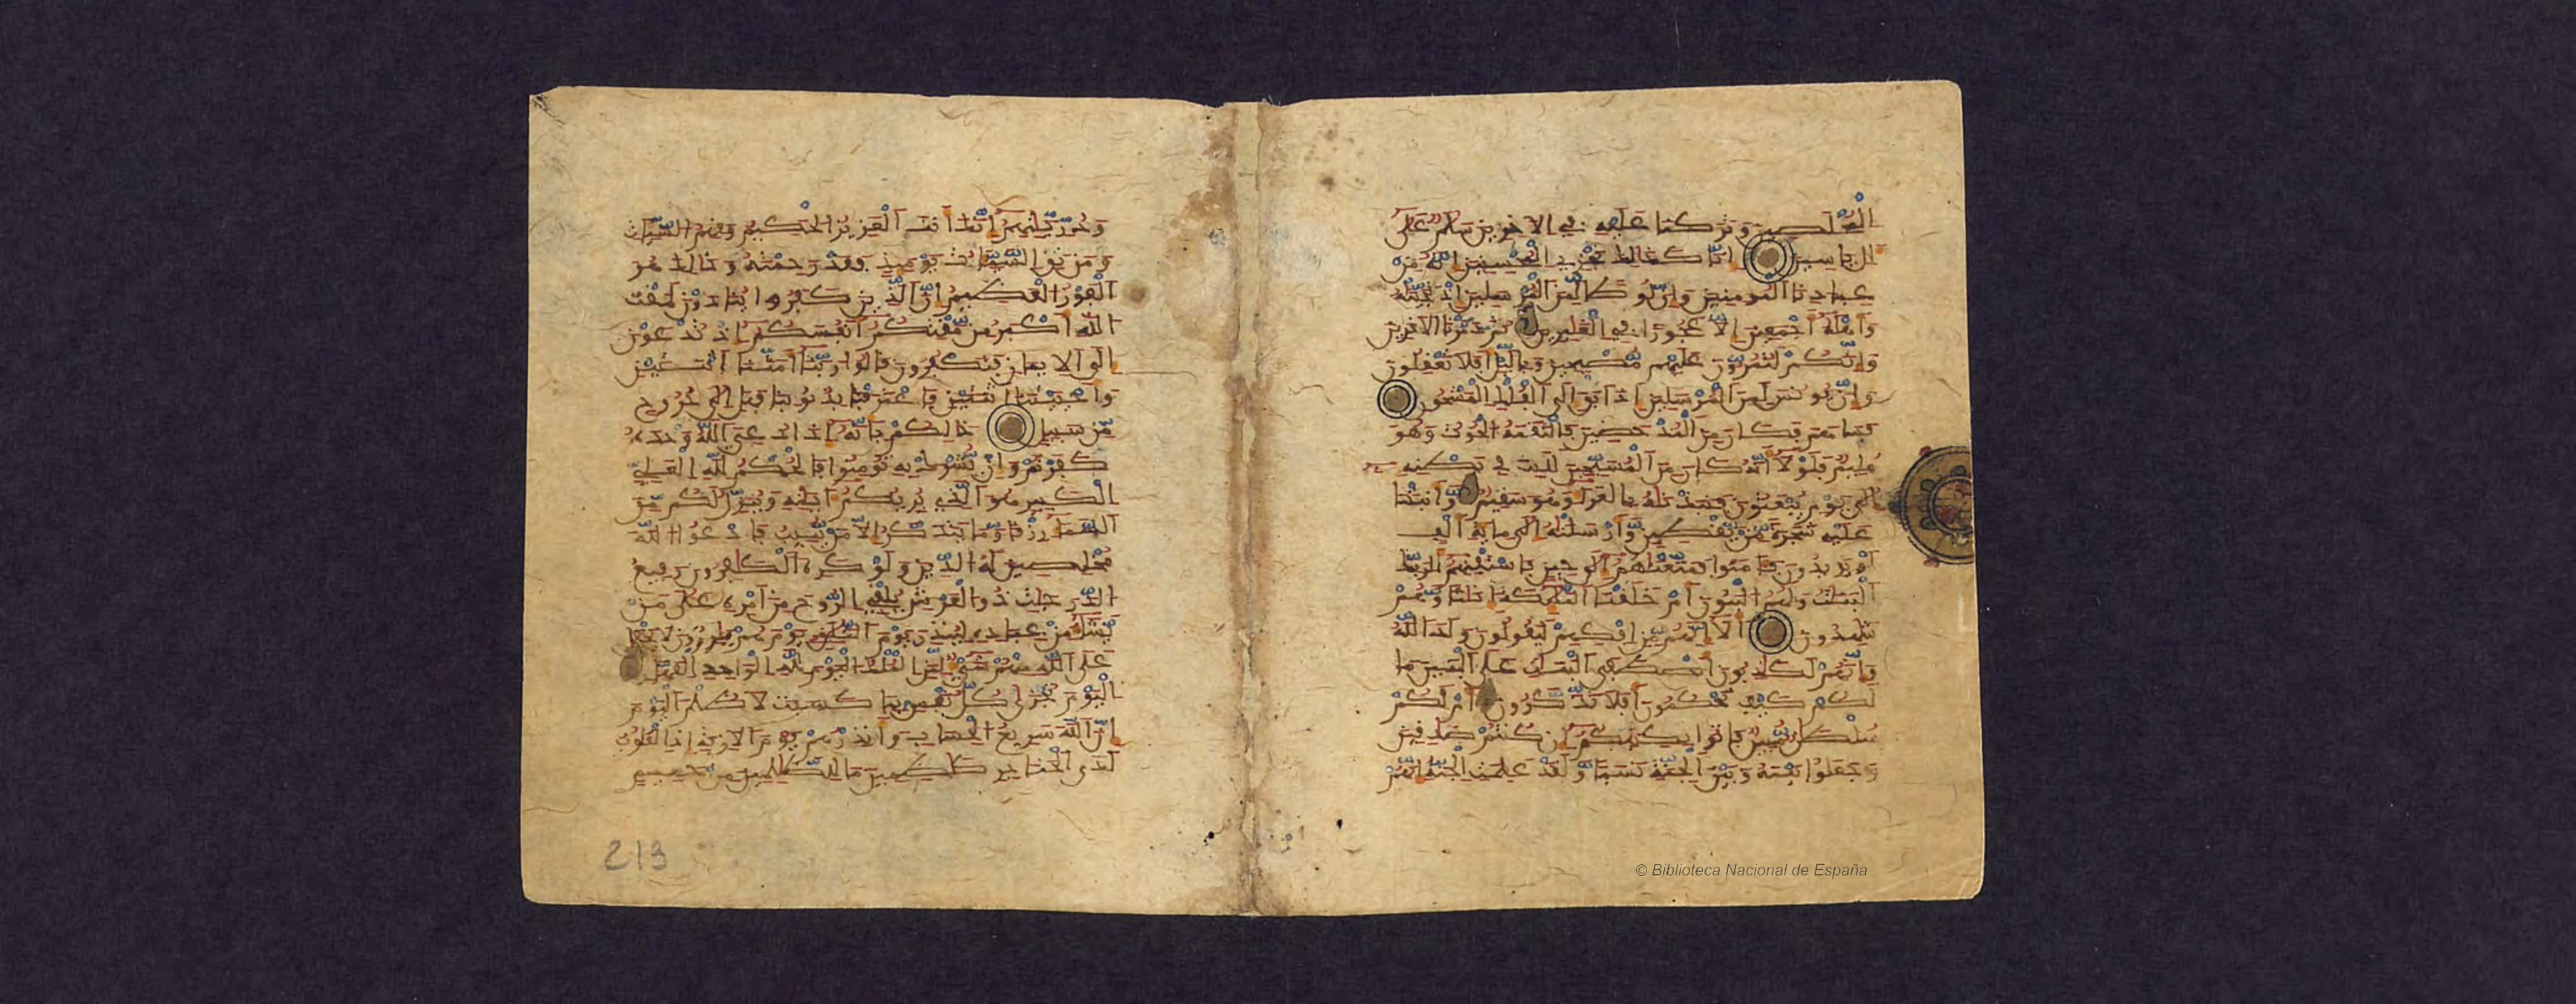 المخلصين وتركنا عليه في الاخرين سلم على
ال ياسين انا كذالك نجزي المحسنين انه من
عبادنا المومنين وان لوطا لمن المرسلين اذ نجينه
واهله اجمعين الا عجوزا في الغبرين ثم دمرنا الاخرين
وانكم لتمرون عليهم مصبحين وباليل افلا تعقلون
وان يونس لمن المرسلين اذ ابق الى الفلك المشحون
فساهم فكان من المدحضين فالتقمه الحوت وهو
مليم فلولا انه كان من المسبحين للبث في بطنه
الى يوم يبعثون فنبذنه بالعرا وهو سقيم وانبتنا
عليه شجرة من يقطين وارسلنه الى ماية الف
او يزيدون فامنوا فمتعنهم الى حين فاستفتهم الربك
البنت ولهم البنون ام خلقنا الملىكة اناثا وهم
شهدون الا انهم من افكهم ليقولون ولد الله
وانهم لكذبون اصطفى البنات على البنين ما
لكم كيف تحكمون افلا تذكرون ام لكم
سلطن مبين فاتوا بكتبكم ان كنتم صدقين
وجعلوا بينه وبين الجنة نسبا ولقد علمت الجنة انهم
وذريتهم انك انت العزيز الحكيم وقهم السيات
ومن تق السيات يوميذ فقد رحمته وذالك هو
الفوز العظيم ان الذين كفروا ينادون لمقت
الله اكبر من مقتكم انفسكم اذ تدعون
الى الايمن فتكفرون قالوا ربنا امتنا اثنتين
واحييتنا اثنتين فاعترفنا بذنوبنا فهل الى خروج
من سبيل ذالكم بانه اذا دعي الله وحده
كفرتم وان يشرك به تومنوا فالحكم لله العلي
الكبير هو الذي يريكم ايته وينزل لكم من
السما رزقا وما يتذكر الا من ينيب فادعوا الله
مخلصين له الدين ولو كره الكفرون رفيع
الدرجت ذوا العرش يلقي الروح من امره على من
يشا من عباده لينذر يوم التلق يوم هم برزون لا يخفى
على الله منهم شي لمن الملك اليوم لله الواحد القهار
اليوم تجزى كل نفس بما كسبت لا ظلم اليوم
ان الله سريع الحساب وانذرهم يوم الازفة اذ القلوب
لدى الحناجر كظمين ما للظلمين من حميم
213
© Biblioteca Nacional de España